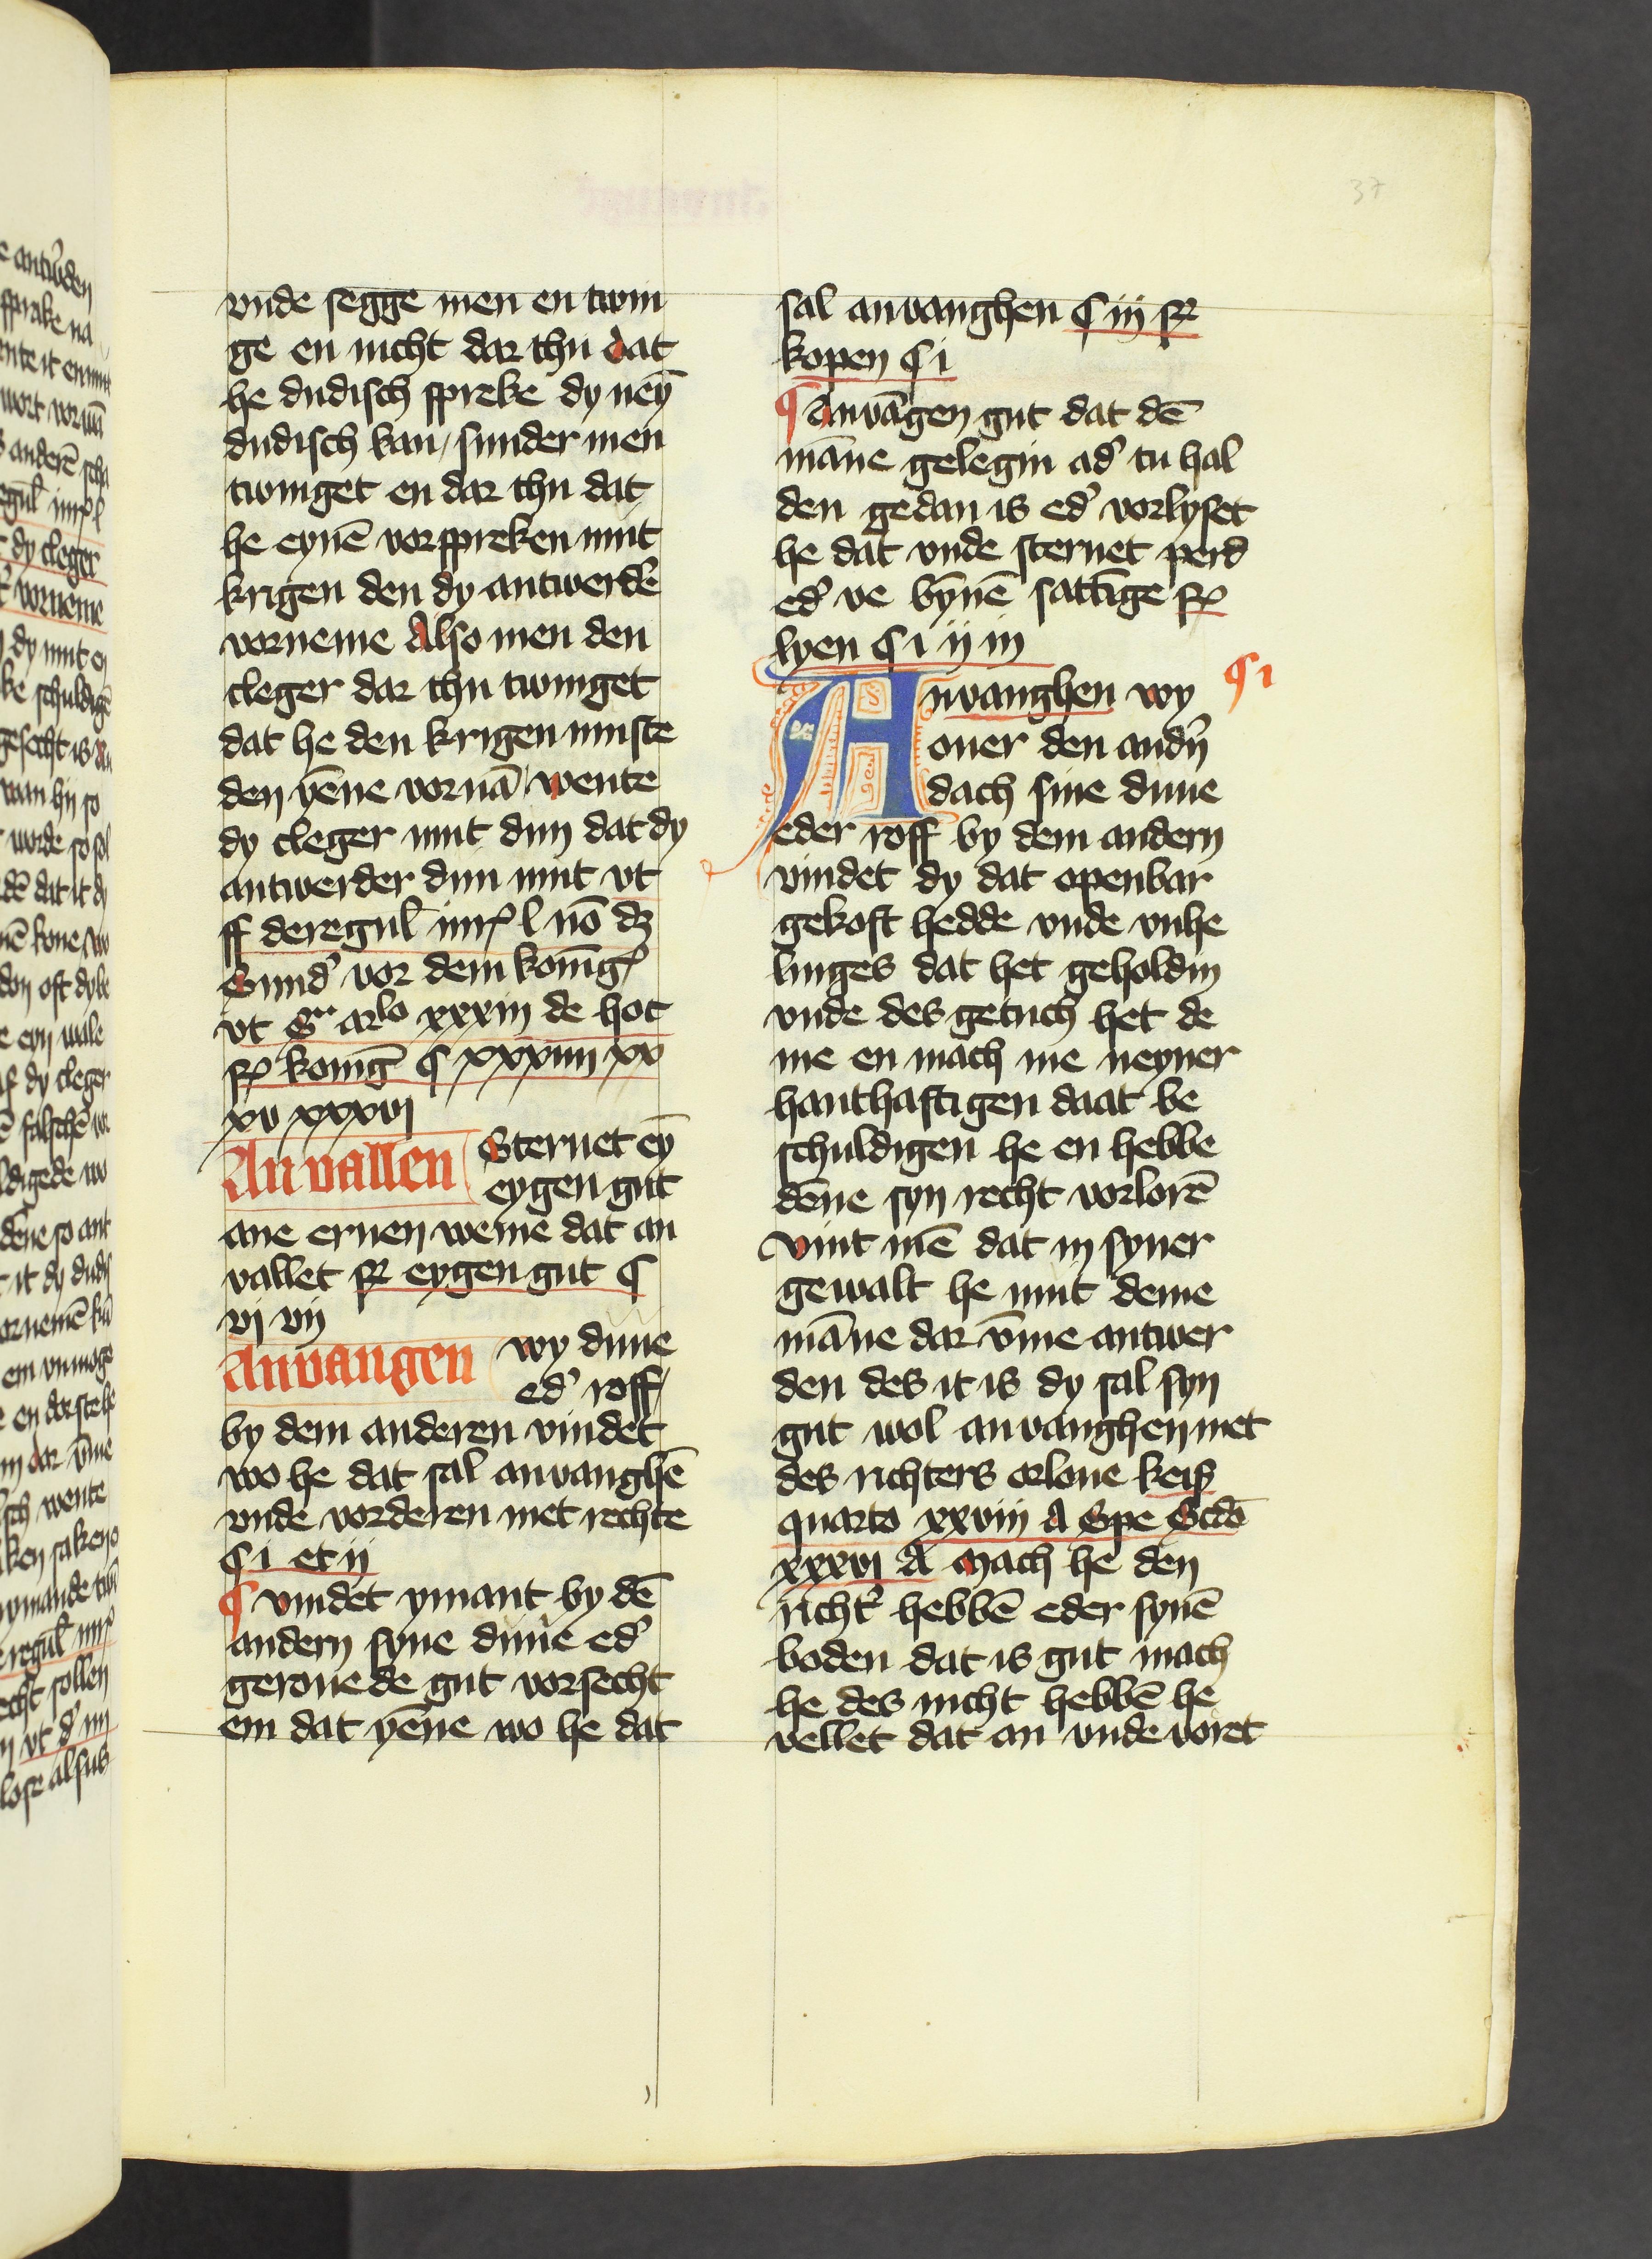 37
vnde segge men en twin
ge en nicht dar thu dat
he dudisch spreke dy neȳ
dudisch kan / sunder men
twinget en dar thu dat
he eynē vorspreken mut
krigen den dy antwerdʾe
vorneme Also men den
cleger dar thu twinget
dat he den krigen muste
den yēne vornā / wente
dy cleger mut dun dat dy
antwerder dun mut vt
ff deregul iur l nō dʒ
Sundʾ vor dem konīgʾ
vt sʳ arlo xxxiii de hoc
sʳ konīg ¶ xxxiiii xx
xv xxxvi
An vallen Steruet eȳ
eygen gut
ane eruen weme dat an
vallet sʳ eygen gut ¶
vi vij
Anvangen wy duue
edʾ roff /
by dem anderen vindet
wo he dat sal anvanghē
vnde vorderen met rechte
¶ i et ij
¶ vindet ymant by dē
andern syne duue edʾ
gerouede gut vorsecht
em dat yēne wo he dat
sal anvanghen ¶ iij sʳ
kopen ¶ i
¶ Anvāgen gut dat dē
māne gelegin adʾ tu hal
den gedan is edʾ vorlyset
he dat vnde steruet perd
edʾ ve bȳnē sattīge sʳ
lyen ¶ i ij iii
Anvanghen wy ¶ i
ouer den andʾn
dach sine duue
eder roff by dem andern
vindet dy dat openbar
gekoft hedde vnde vnhe
linges dat het geholdin
vnde des getuch het de
me en mach me neyner
hanthaftigen daat be
schuldigen he en hebbe
dēne syn recht vorlorē
vint mē dat in syner
gewalt he mut deme
māne dar v̄me antwer
den des it is dy sal syn
gut wol anvanghen met
des richters orloue keiß
quarto xxviij A Spe Scdō
xxxvi A Mach he den
richtʾ hebbē eder synē
boden dat is gut mach
he des nicht hebbē he
vellet dat an vnde voret